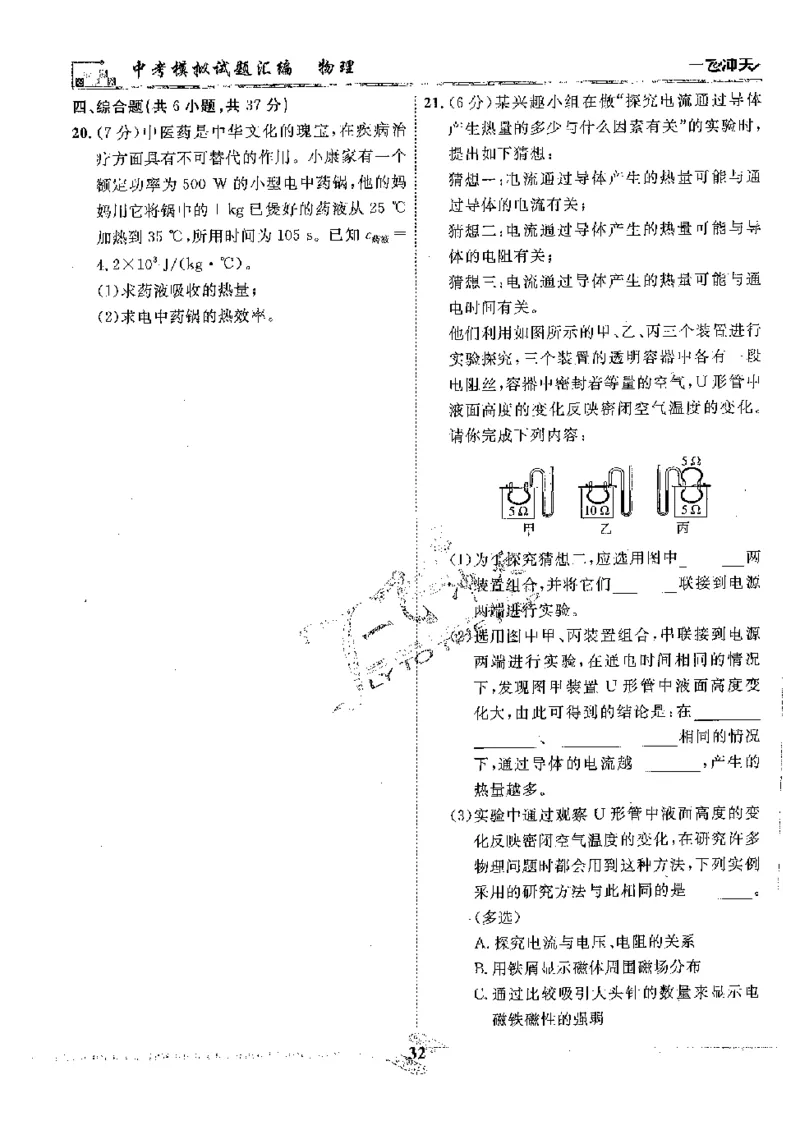 中考模拟试题汇编 物理
一飞冲天
四、综合题(共 6 小题,共 37 分)
20. (7 分)中医药是中华文化的瑰宝,在疾病治
疗方面具有不可替代的作用。小康家有一个
额定功率为 500 W 的小型电中药锅,他的妈
妈用它将锅中的 1 kg 已煲好的药液从 25 ℃
加热到 35 ℃,所用时间为 105 s。已知 c药液 =
4.2×10³ J/(kg·℃)。
(1)求药液吸收的热量;
(2)求电中药锅的热效率。
21. (6 分)某兴趣小组在做“探究电流通过导体
产生热量的多少与什么因素有关”的实验时,
提出如下猜想:
猜想一:电流通过导体产生的热量可能与通
过导体的电流有关;
猜想二:电流通过导体产生的热量可能与导
体的电阻有关;
猜想三:电流通过导体产生的热量可能与通
电时间有关。
他们利用如图所示的甲、乙、丙三个装置进行
实验探究,三个装置的透明容器中各有一段
电阻丝,容器中密封着等量的空气,U 形管中
液面高度的变化反映密闭空气温度的变化。
请你完成下列内容:
5 Ω
5 Ω 10 Ω 5 Ω
甲 乙 丙
(1)为了探究猜想二,应选用图中____两
装置组合,并将它们____联接到电源
两端进行实验。
(2)选用图中甲、丙装置组合,串联接到电源
两端进行实验,在通电时间相同的情况
下,发现图甲装置 U 形管中液面高度变
化大,由此可得到的结论是:在______
______、______相同的情况
下,通过导体的电流越______,产生的
热量越多。
(3)实验中通过观察 U 形管中液面高度的变
化反映密闭空气温度的变化,在研究许多
物理问题时都会用到这种方法,下列实例
采用的研究方法与此相同的是____。
(多选)
A. 探究电流与电压、电阻的关系
B. 用铁屑显示磁体周围磁场分布
C. 通过比较吸引大头针的数量来显示电
磁铁磁性的强弱
32